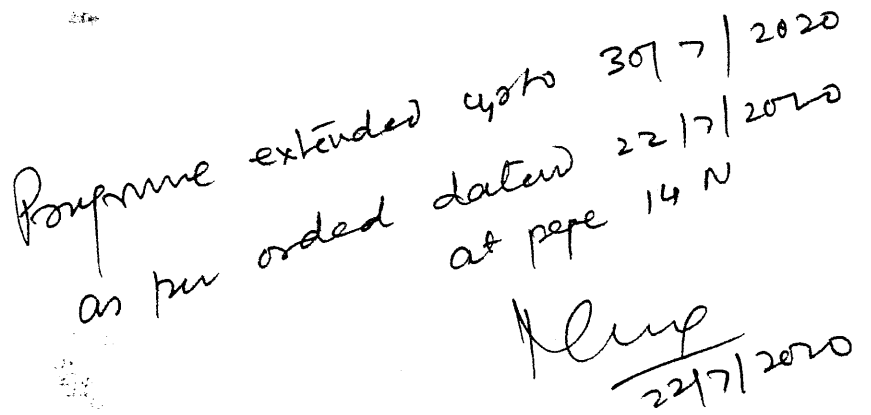 Programme extended upto 30/7/2020
as per orded dated 22/7/2020
at page 14 N
22/7/2020